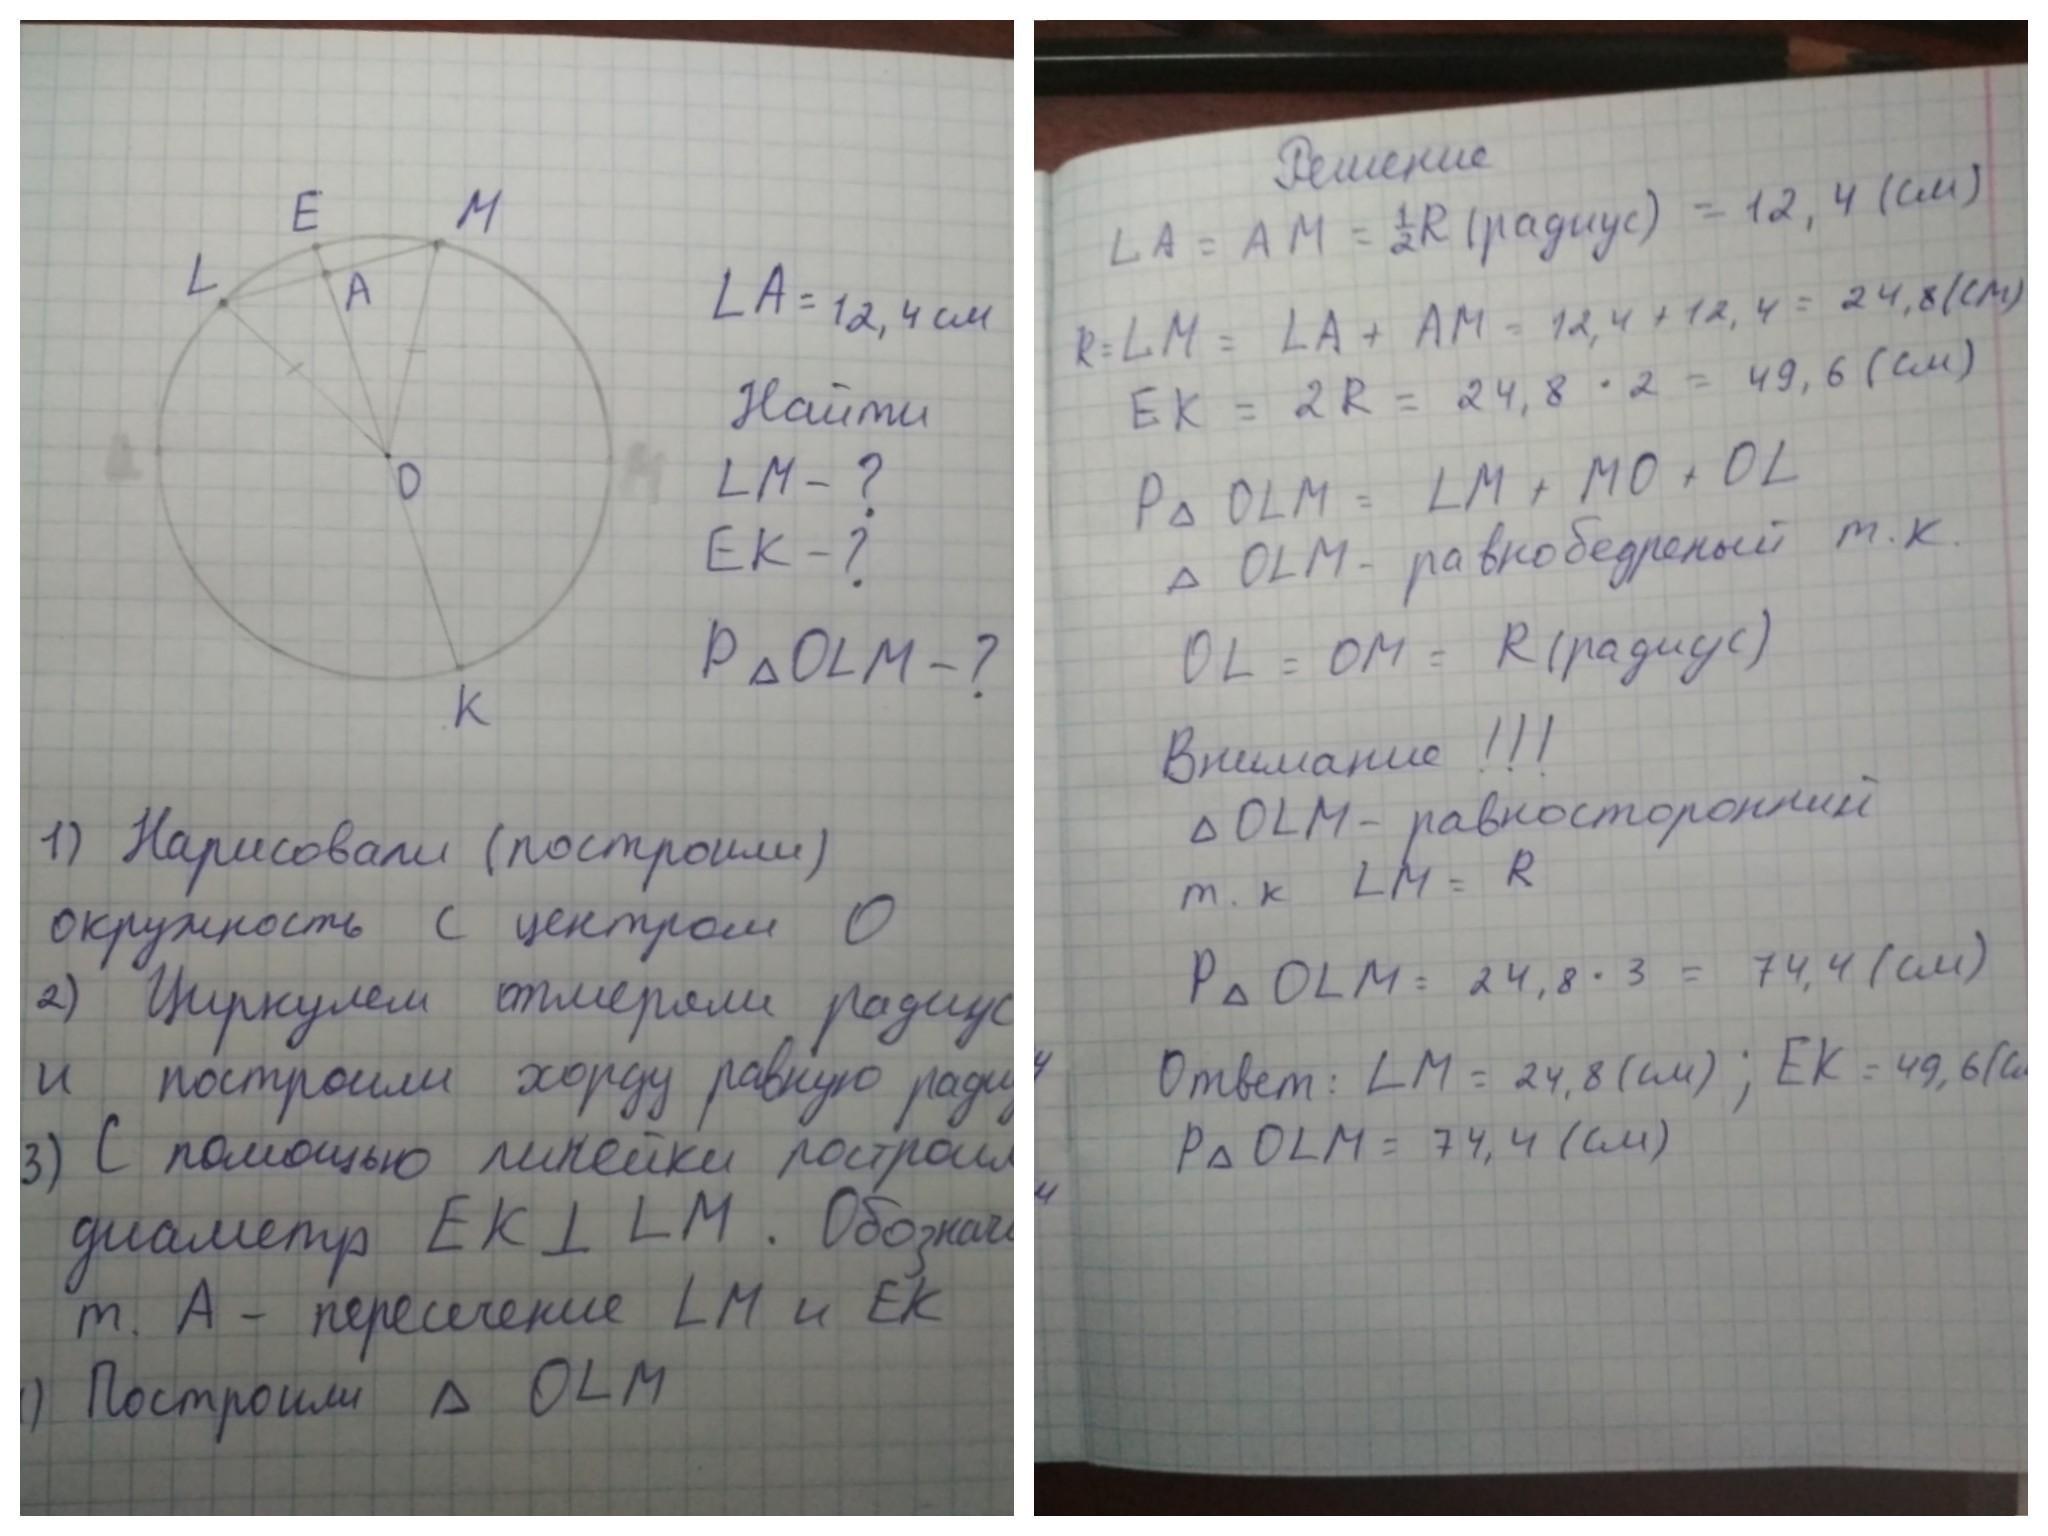 E
M
L
A
O
K
LA = 12,4 см
Найти
LM - ?
EK - ?
P△OLM - ?
1) Нарисовали (построили)
окружность с центром O
2) Циркулем отмеряли радиус
и построили хорду равную
3) С помощью линейки
диаметр EK ⊥ LM.
т. A - пересечение LM и EK
) Построили △ OLM
Решение
LA = AM = 1/2 R (радиус) = 12,4 (см)
R = LM = LA + AM = 12,4 + 12,4 = 24,8 (см)
EK = 2R = 24,8 · 2 = 49,6 (см)
P△ OLM = LM + MO + OL
△ OLM - равнобедреный т.к.
OL = OM = R (радиус)
Внимание !!!
△ OLM - равносторонний
т.к LM = R
P△ OLM = 24,8 · 3 = 74,4 (см)
Ответ: LM = 24,8 (см); EK = 49,6 (см
P△ OLM = 74,4 (см)